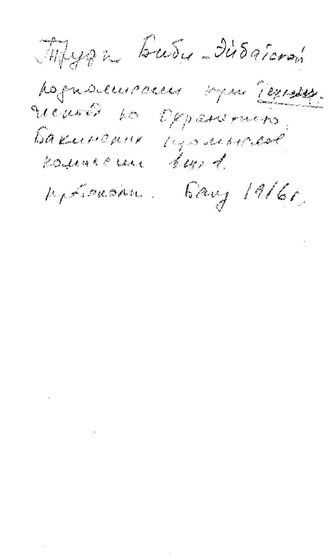 Труды Биби-Эйбатской
подкомиссии при Техни-
ческой по охранению
Бакинских промыслов
комиссии вып 1.
протоколы. Баку 1916 г.